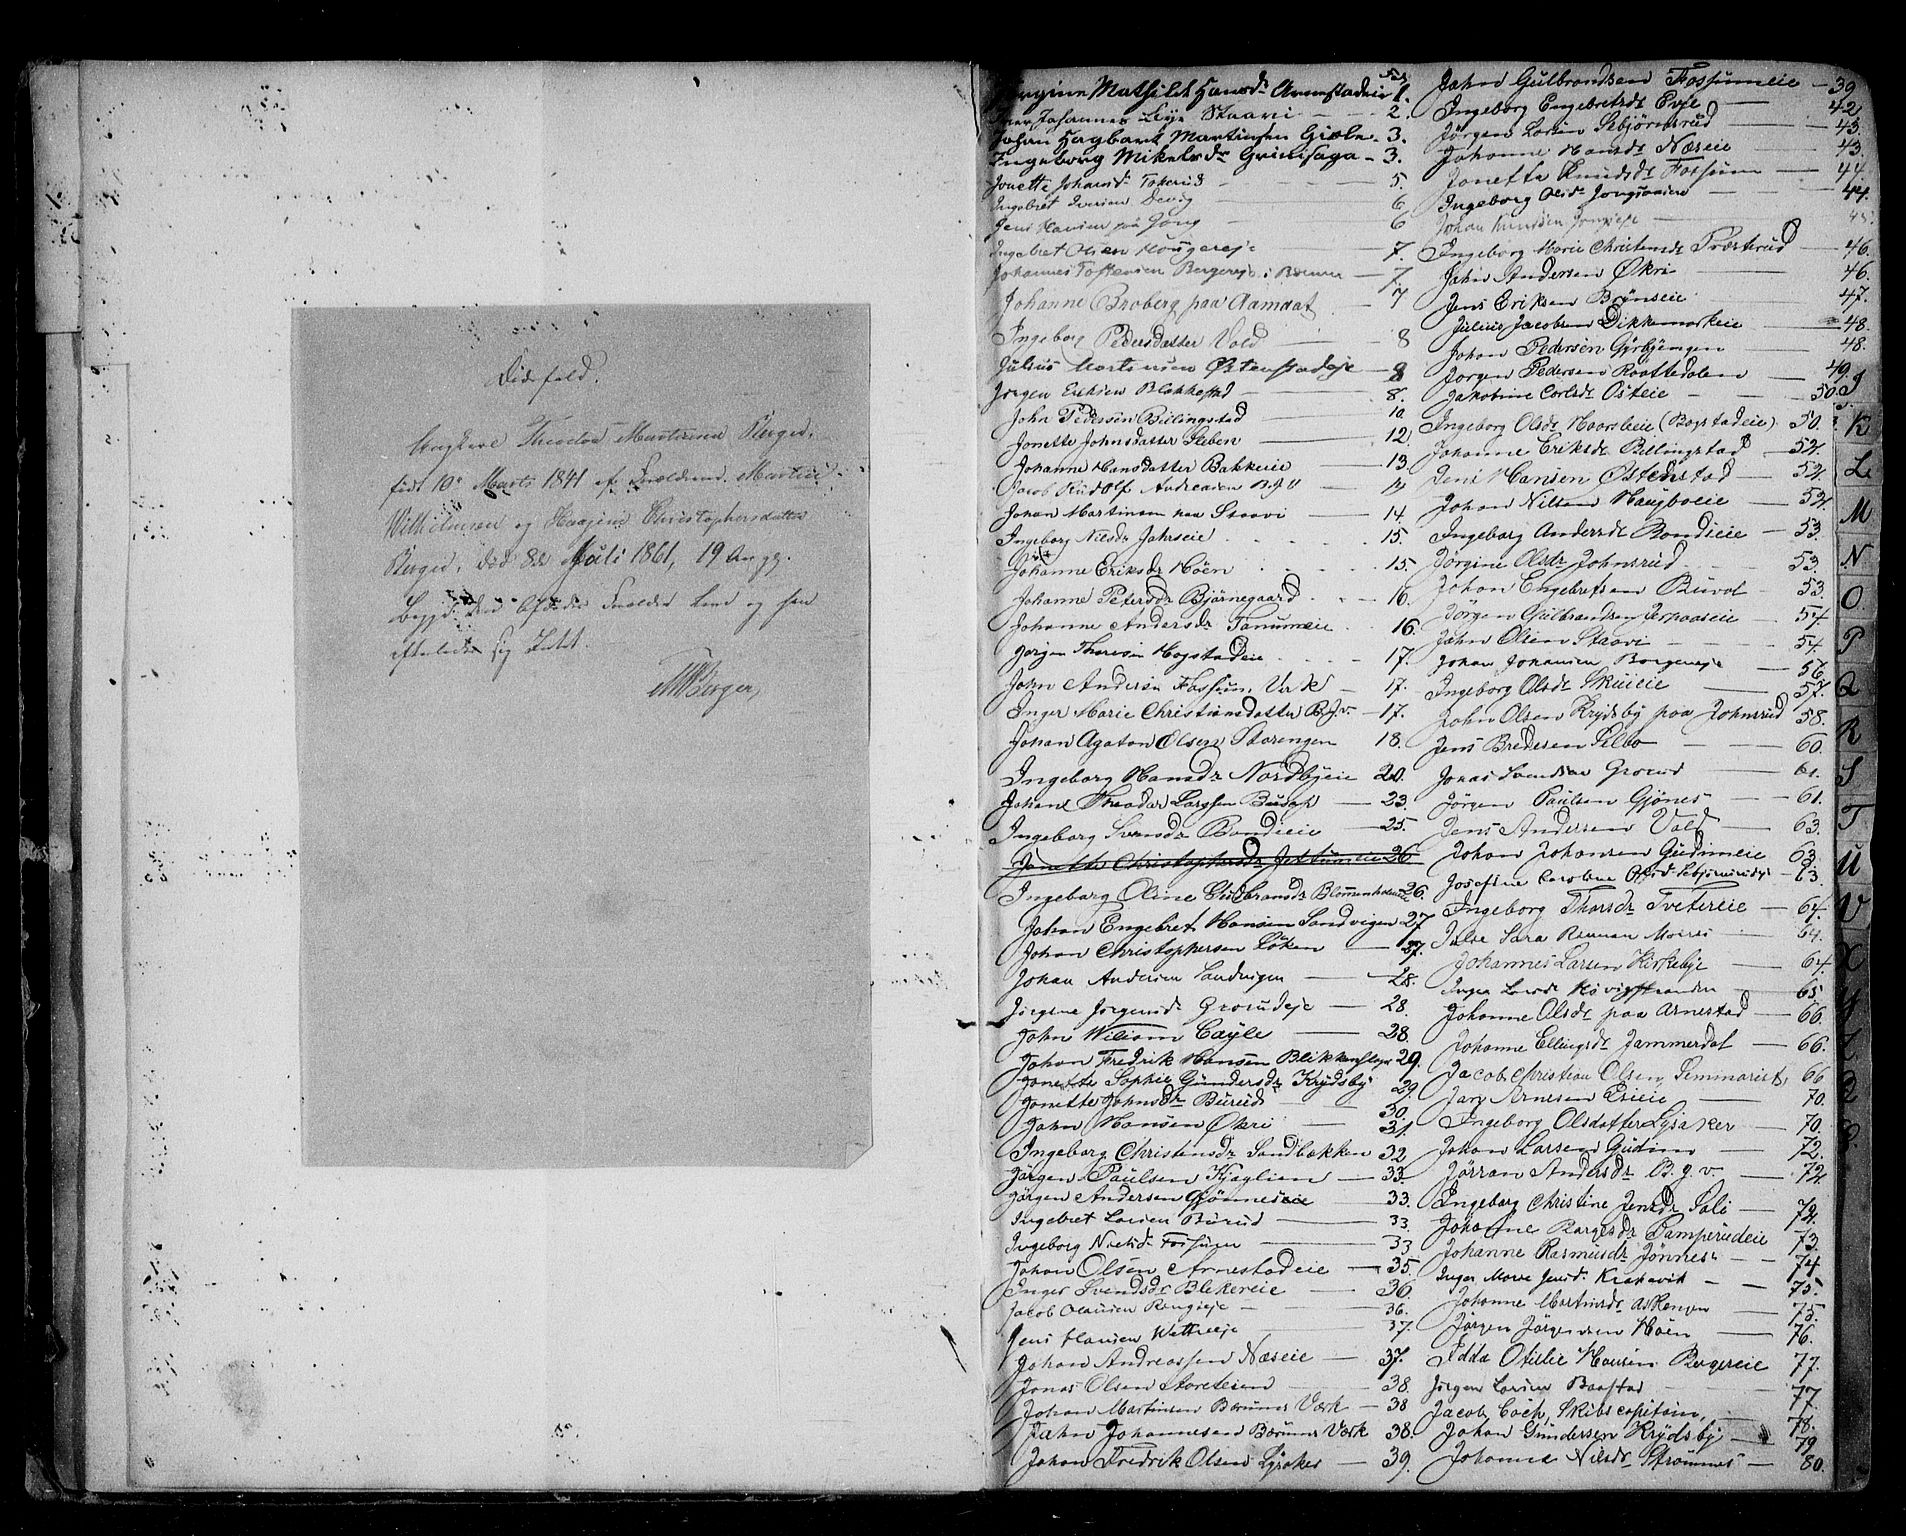 Dødsfald.
Ungkarl Theodor Martinsen Berger,
født 10de Marts 1841 af Forældrene Martin
Wilhelmsen og Haagine Christophersdatter
Berger, død 8de Juli 1861, 19 Aar gl.
den Afdødes Forældre leve og han
efterlader sig Intet.
Berger
Mathilde Hansdr Arnestadeie 1.
Iver Johannes Staavi 2.
Johan Hagbart Martinsen Gisle 3.
Ingeborg Mikelsdr Grinisaga 3.
Jonette Johansdr Tokerud 5.
Ingebret Iversen 6
Jens Hansen paa Jong 6
Ingebret Olsen Hougereje 7.
Johannes Toftensen Bergereje i Bærum 7.
Johanne Broberg paa Aamdat 7
Ingeborg Pedersdatter Vold 8
Julius Martinsen Østenstadeje 8
Jørgen Eriksen Blakkestad 8.
John Pedersen Billingstad 10
Jonette Johnsdatter Sleben 12
Johanne Hansdatter Bakkeie 13
Jacob Rudolf Andreasen B.J.V 14
Johan Martinsen paa Staavi 14
Ingeborg Nilsdr Jahrseie 15.
Johanne Eriksdr Höen 15.
Johanne Petersdr Bjørnegaard 16.
Johanne Andersdr Tanumeie 16.
Jørgen Thoresen Hogstadeie 17.
John Andersen Fossum Værk 17.
Inger Marie Christiansdatter B.J.v. 17.
Johan Agaton Olsen Storengen 18.
Ingeborg Hansdr Nordbyeie 20.
Johan Theodor Larssen 23.
Ingeborg Svensdr Bondieie 25.
Jonette Christophersdr Jettumeie 26
Ingeborg Oline Gulbransdr Blommenholmeie 26.
Johan Engebret Hansen Sandvigen 27
Johan Christophersen Løken 27.
Johan Andersen Sandvigen 28.
Jørgine Jørgensdr Grorudeje 28.
John William Cayle 28.
Johan Fredrik Hansen Blikkenslager 29.
Jonette Sophie Gundersdr Krydsby 29.
Jonette Johnsdr Burud 30.
John Hansen Økri 31.
Ingeborg Christensdr Sandbakken 32
Jørgen Paulsen Kjaglien 33.
Jørgen Andersen Gjønneseie 33.
Ingebret Larsen Burud 33
Ingeborg Nielsdr Fossum 33
Johan Olsen Arnestadeie 35.
Inger Svendsdr Blekereie 36.
Jacob Olausen Rongieje 36.
Jens Hansen Wettreeje 37.
Johan Andreassen Næseie 37.
Jonas Olsen 38.
Johan Martinsen Bærums Værk 38
John Johannesen Bærums Værk 38.
Johan Fredrik Olsen Lysaker 39.
Johan Gulbrandsen Fossumeie 39
Ingeborg Engebretsdr Evje 42
Jørgen Larsen Isbjørnsrud 43.
Johanne Hansdr Næseie 43.
Jonetta Knudsdr Fossum 44.
Ingeborg Olsdr Jongsaaseie 44.
Johan Knudsen Jongseje 45.
Ingeborg Marie Christensdr Præsterud 46.
John Andersen Økri 46.
Jens Eriksen Brynseie 47.
Julius Jacobsen Dikkemarkeie 48.
Johan Pedersen Gyrbyengen 48.
Jørgen Pedersen Raattedalen 49.
Jakobine Carlsdr Osteie 50.
Ingeborg Olsdr Haarsbeie (Bogstadeie) 50.
Johanne Eriksdr Billingstad 52.
Jens Hansen Østenstad 52.
Johan Nilsen Haugboeie 52.
Ingeborg Andersdr Bondieie 53.
Jørgine Olsdr Johnsrud 53.
Johan Engebretsen Buvol 53.
Jørgen Gulbrandsen Jerpaaseie 54.
John Olsen Staavi 54.
Johan Johansen Borgereje 56.
Ingeborg Olsdr Skuieie 57.
John Olsen Krydsby paa Johnsrud 58.
Jens Bredesen Selbo 60.
Jonas Svendsen Grorud 61.
Jørgen Paulsen Gjønes 61.
Jens Andersen Vold 63.
Johan Johansen Gudimeie 63.
Josefine Caroline 63.
Ingeborg Thorsdr Tvetereie 64.
Sara 64.
Johannes Larsen Kirkebye 64.
Inger Larsdr Høvigstranden 65.
Johanne Olsdr paa Arnestad 66.
Johanne Ellingsdr Jammerdal 66.
Jacob Christian Olsen, Seminarist, 66
Arnesen 70.
Ingeborg Olsdatter Lysaker 70.
Johan Larsen Gudim 72.
Jørran Andersdr B.g.v 72.
Ingeborg Christine Jensdr Solli 72.
Johanne Børgesdr Bamperudeie 73.
Johanne Rasmusdr Jønnes 74
Inger Marie Jensdr Krakavik 75.
Johanne Martinsdr Askengen 75.
Jørgen Jørgensen Høen 76.
Edda Otilie Hansen Bergereie 77.
Jørgen Larsen Baastad 77.
Jacob Coch, Skibscapitain, 78.
Johan Gundersen Krydsby 79
Johanne Nilsdr Strømnes 80.
J
K
L
M
N
O
P
Q
R
S
T
U
V
X
Y
Z
Æ
Ø